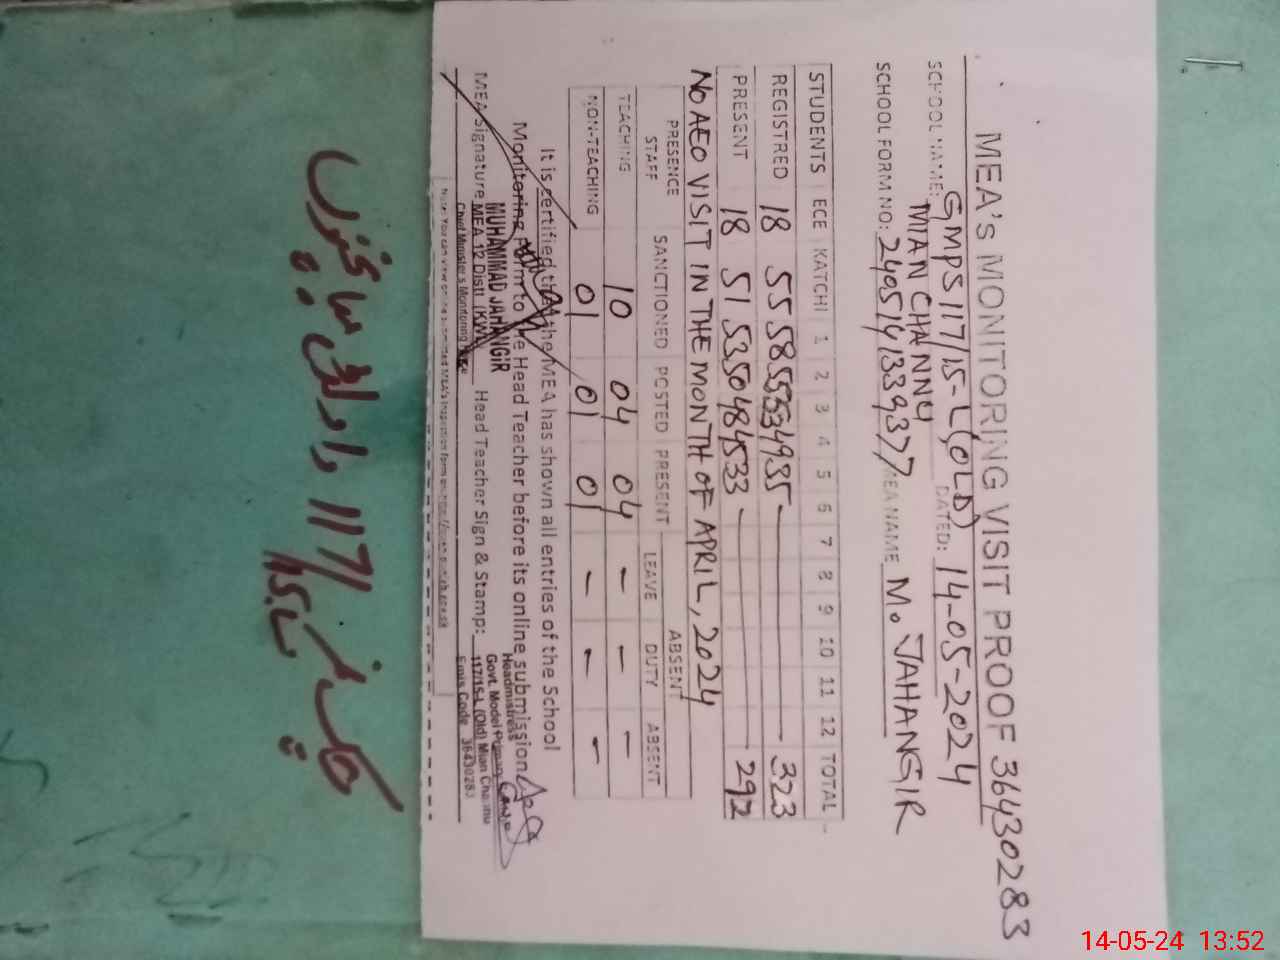 MEA's MONITORING VISIT PROOF 36430283
SCHOOL NAME: GMPS 117/15-L (OLD) DATED: 14-05-2024
MIAN CHANNU
SCHOOL FORM NO: 2405141339377 MEA NAME M. JAHANGIR
STUDENTS ECE KATCHI 1 2 3 4 5 6 7 8 9 10 11 12 TOTAL
REGISTRED 18 55 58 55 53 49 35 — 323
PRESENT 18 51 53 50 48 45 33 — 292
NO AEO VISIT IN THE MONTH OF APRIL, 2024
PRESENCE ABSENT
STAFF SANCTIONED POSTED PRESENT LEAVE DUTY ABSENT
TEACHING 10 04 04 - - -
NON-TEACHING 01 01 01 - - -
It is certified that the MEA has shown all entries of the School
Monitoring Form to the Head Teacher before its online submission
MEA Signature Head Teacher Sign & Stamp:
MUHAMMAD JAHANGIR
MEA 12 Distt (KWL)
Chief Minister's Monitoring Force
Headmistress
Govt. Model Primary
117/15-L (Old) Mian Channu
Emis Code 36430283
Note: You can view online submitted MEA's inspection form on
چک نمبر 117/ اولڈ میاں چنوں
14-05-24 13:52